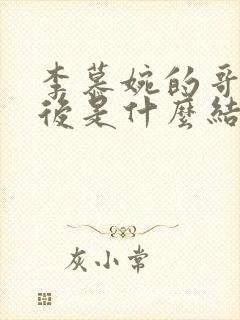 李慕婉的哥
後是什麼結
灰小常